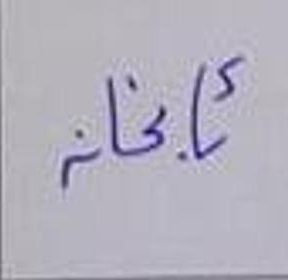 کتابخانه